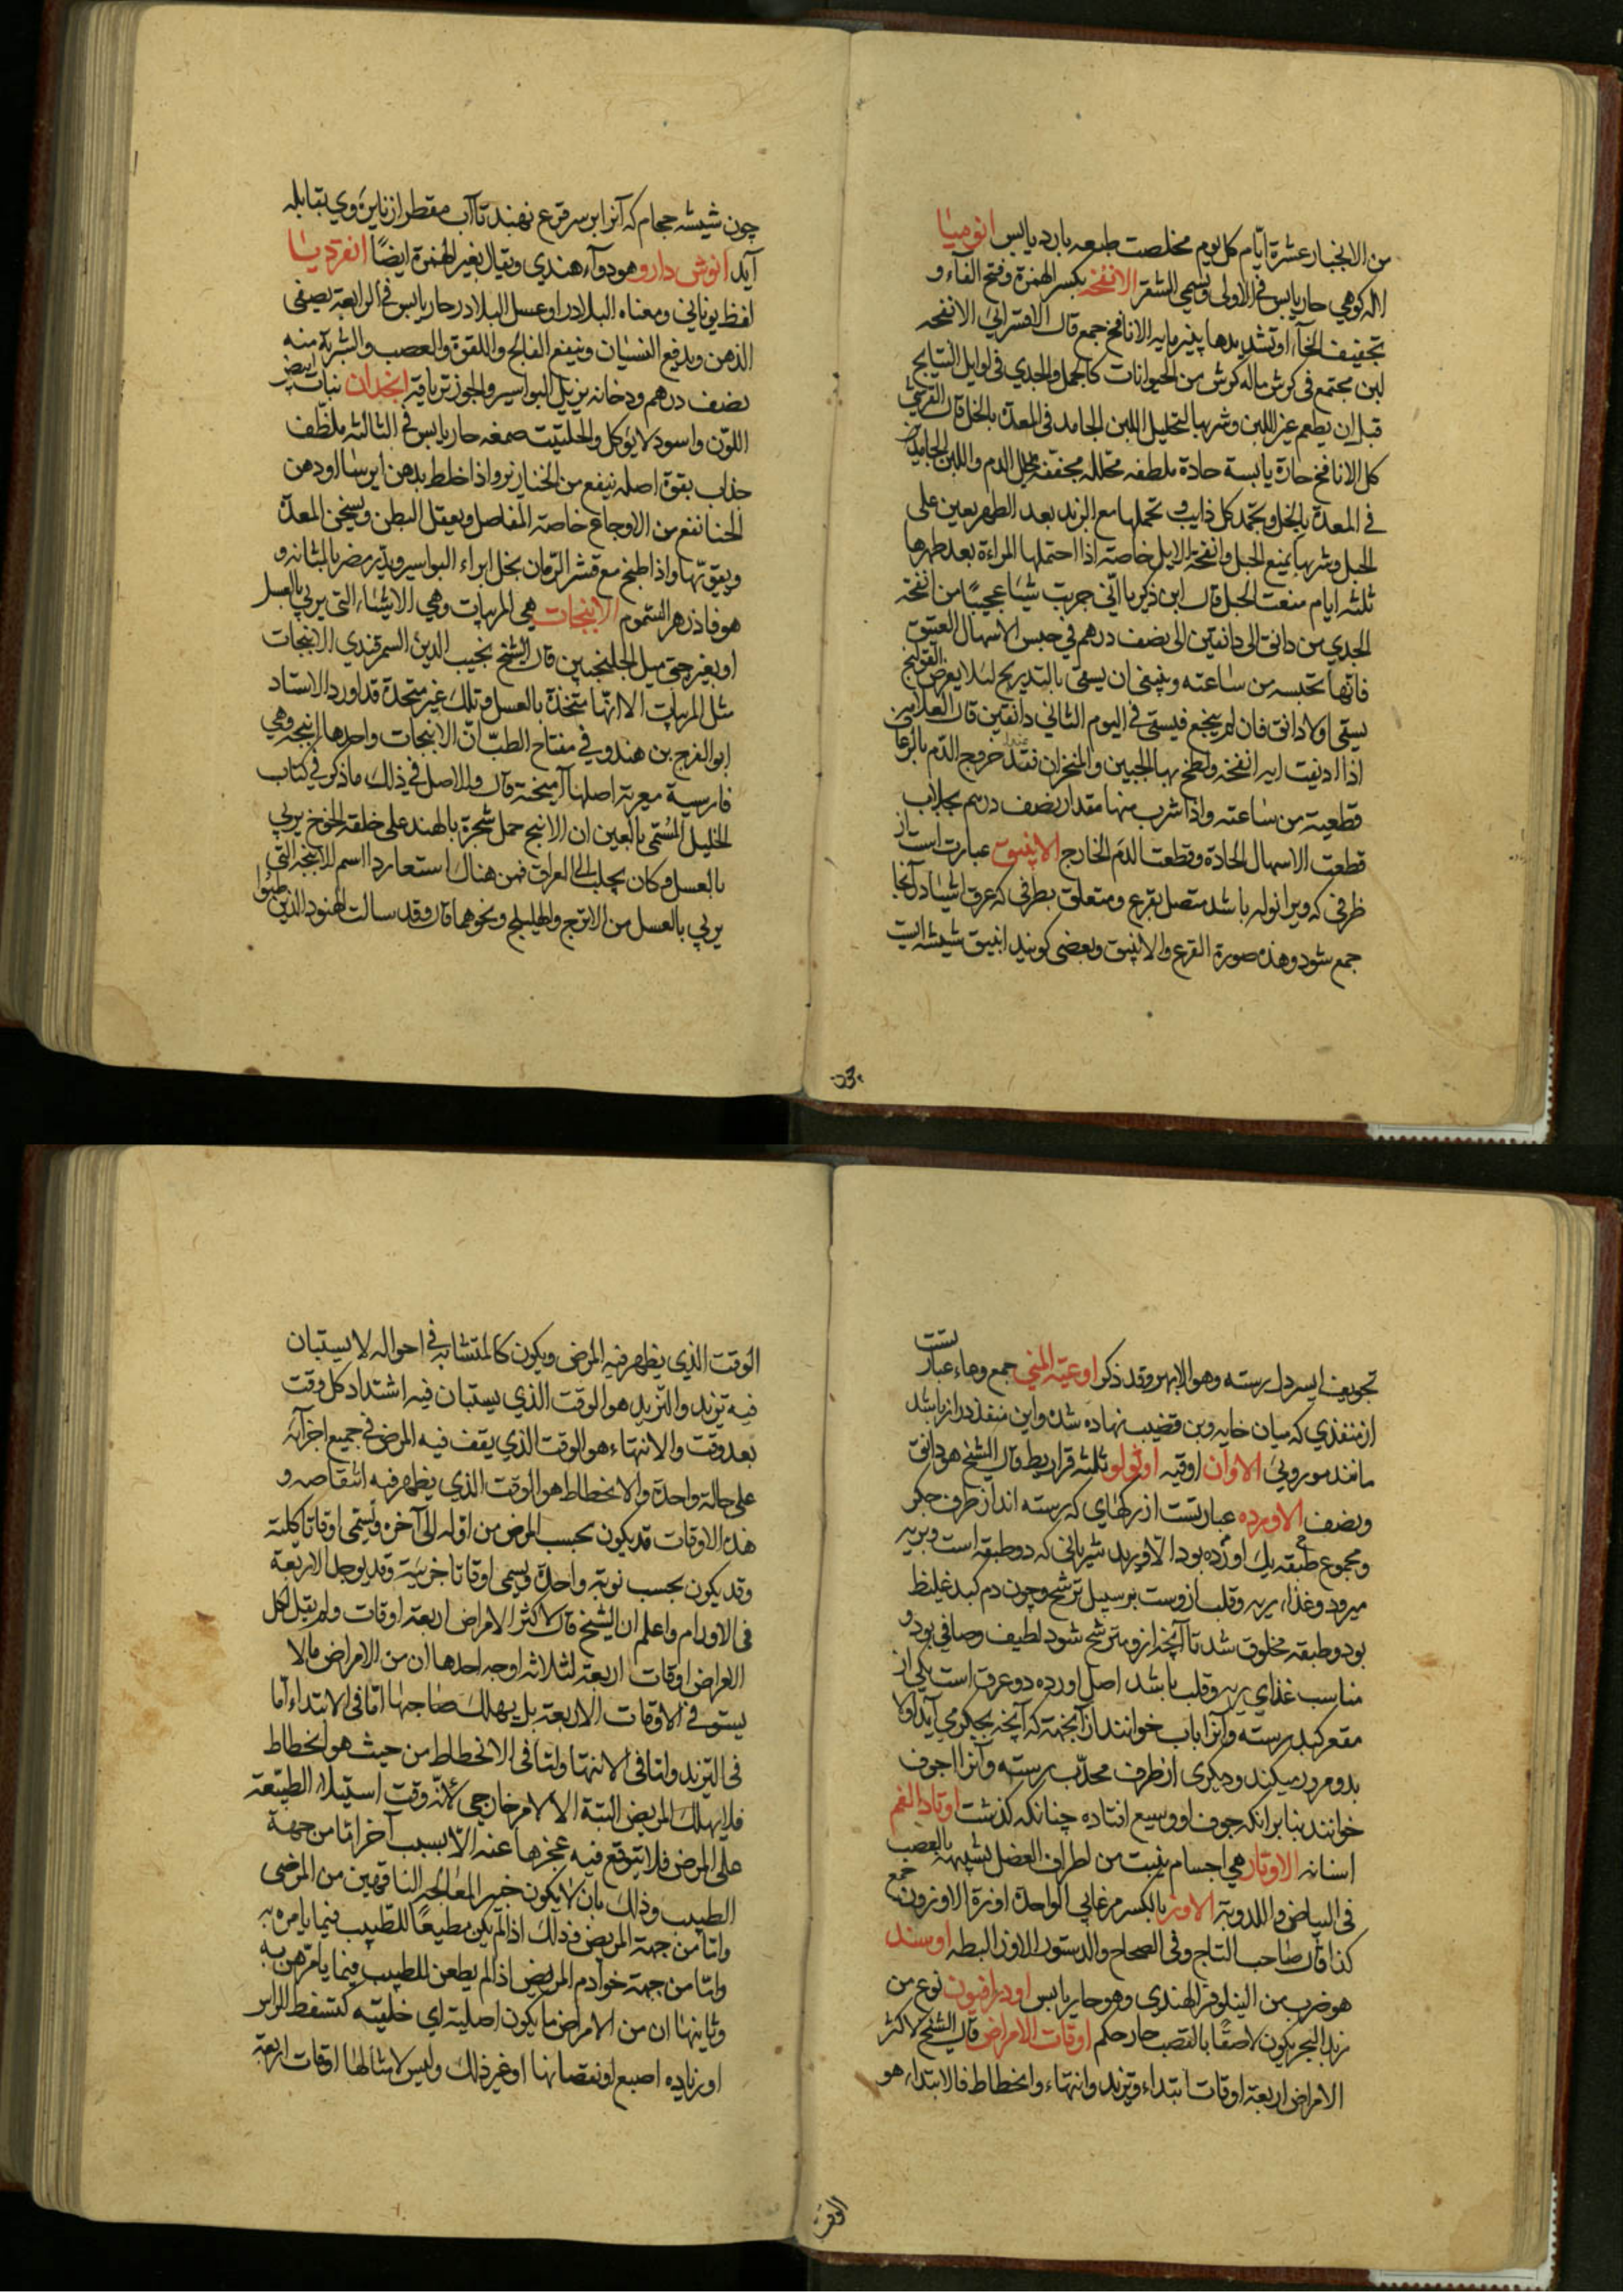 من الانجبار عشرة ايّام كل يوم مخلصت طبعه بارد يابس انوميا
اله كوهي حار يابس في الاولى ويسمى الشقر الانفخه بكسر الهمزة وفتح الفآء و
تخفيف الحآء او تشديدها پنير مايه الانافح جمع قال الاقسرائي الانفحه
لبن مجتمع في كرش ماله كرش من الحيوانات كالجمل والجدي في اوايل النتايج
قبل ان يطعم غير اللبن وشربها لتحليل اللبن الجامد في المعدة بالخل قال القرشي
كل الانافح حارة يابسة حادة ملطفه محلله مجففه يحلل الدم واللبن الجامدين
في المعدة بالخل ويجمد كل ذايب و تحملها مع الزبد بعد الطهر يعين على
الحبل وشربها يمنع الحبل وانفحة الايل خاصة اذا احتملها المراءة بعد طهرها
ثلثه ايام منعت الحبل قال ابن زكريا انّي جربت شيئا عجيبًا من انفحة
الجدي من دانق الى دانقين الى نصف درهم في حبس الاسهال العتيق
فانّها تحبسه من ساعته وينبغى ان يسقى بالتدريج لئلا يعرض القولنج
يسقى اولا دانق فان لم ينجع فيسقى في اليوم الثاني دانقين قال العلا ابن
اذا اديفت ايه انفخة ولطخ بها الجبين والمنخران فعند خروج الدّم بالرعاف
قطعية من ساعته واذا شرب منها مقدار نصف درهم بجلاب
قطعت الاسهال الحادة وقطعت الدّم الخارج الانبيق عبارت است از
ظرفى كه ويرا نوله باشد متصل بقرع ومتعلق بطرفى كه عرق اشيا در آنجا
جمع شود وهذه صورة القرع والانبيق وبعضى كويند انبيق شيشه ايست
چون
چون شيشه حجام كه آنرا بر سر قرع نهند تا آب مقطر از نايزه وي بقابله
آيد انوش دارو وهو دوآء هندي ويقال بغير الهمزة ايضًا انقرديا
لفظ يوناني ومعناه البلادر او عسل البلادر حار يابس في الرابعة يصفى
الذهن ويدفع النسيان وينفع الفالج واللقوة والعصب والشربة منه
نصف درهم ودخانه يزيل البواسير والجوز ترياقه انجدان نبات ابيض
اللون واسود لا يؤكل والحلتيت صمغه حار يابس في الثالثه ملطّف
جذاب بقوة اصله ينفع من الخنازير واذا خلط بدهن ايرسا او دهن
الحنا نفع من الاوجاع خاصة المفاصل ويعقل البطن ويسخن المعدة
ويقوّيها واذا طبخ مع قشر الرّمان بخل ابراء البواسير ويضر بالمثانه و
هو فاذزهر السّموم الانبجات هي المربيات وهي الاشياء التى يربي بالعسل
او بغيره حتى ميل الجلنجبين قال الشيخ نجيب الدين السمرقندي الانبجات
مثل المربيات الا انّها متخذة بالعسل وتلك غير متخذة قد اورد الاستاد
ابو الفرج بن هندو في مفتاح الطبّ انّ الانبجات واحدها انبجه وهي
فارسية معربة اصلها آميخته قال والاصل في ذلك ما ذكر في كتاب
الخليل المسّمى بالعين ان الانبج حمل شجرة بالهند على خلقة الخوخ يربي
بالعسل وكان يجلب الى العراق فمن هناك استعاروا اسم الانبجه التى
يربي بالعسل من الاترج والهليلج ونحوهما قال وقد سالت الهنود الذين طبّوا
تجويف ايسر دل رسته وهو الابهر وقد ذكر اوعية المني جمع وعاء عبارتست
از منفذي كه ميان خايه وبن قضيب نهاده شده واين منفذ دراز باشد
مانند موروني الاوان اوقيه اوثولو ثلثه قراريط وقال الشيخ هو دانق
ونصف الاورده عبارتست از ركهاى كه رسته اند از طرف جكر
ومجموع يك طبقه بود الّا وريد شرياني كه دو طبقه است و بريه
ميرود وغذاء ريه وقلب ازوست بر سبيل ترشح وچون دم كبد غليظ
بود دو طبقه مخلوق شد تا آنچه ازو مترشح شود لطيف وصافي بود و
مناسب غذاي ريه وقلب باشد اصل اورده دو عرق است يكى از
مقعر كبد رسته وآنرا باب خوانند از آنجهة كه آنچه بجكر مي آيد اولا
بدو مرور ميكند وديكرى از طرف محدّب رسته وآنرا اجوف
خوانند بنا بر انكه جوف او وسيع افتاده چنانكه كذشت اوتاد الفم
اسنانه الاوتار هي اجسام ينبت من اطراف العضل يشبه بالعصب
في البياض واللدونة الاوز بالكسر مرغابي الواحدة اوزة الاوزون جمع
كذا قال صاحب التاج وفي الصحاح والدستور الاوز البطه اوسند
هو ضرب من النيلوفر الهندى وهو حار يابس اودراقيون نوع من
زبد البحر يكون لاصقًا بالقصب حار حكم اوقات الامراض قال الشيخ لاكثر
الامراض اربعة اوقات ابتداء وتزيد وانتهاء وانحطاط فالابتداء هو
الوقت
الوقت الذي يظهر فيه المرض ويكون كالمتشابه في احواله لا يستبان
فيه تزيد والتزيد هو الوقت الذي يستبان فيه اشتداد كل وقت
بعد وقت والانتهاء هو الوقت الذي يقف فيه المرض في جميع اجزآئه
على حالة واحدة والانحطاط هو الوقت الذي يظهر فيه انتقاصه و
هذه الاوقات قد يكون بحسب المرض من اوّله الى آخره ويسمى اوقاتا كلية
وقد يكون بحسب نوبة واحدة ويسمى اوقاتا جزئية وقد يوجد الاربعة
في الاورام واعلم ان الشيخ قال لاكثر الامراض اربعة اوقات ولم يقل لكل
الامراض اوقات اربعة لثلاثه اوجه احدها ان من الامراض ما لا
يستوفي الاوقات الاربعة بل يهلك صاحبها امّا في الابتداء امّا
في التزيد وامّا في الانتها وامّا في الانحطاط من حيث هو انحطاط
فلا يهلك المريض البتة الا لامر خارجي لانّه وقت استيلاء الطبيعة
على المرض فلا يتوقع فيه عجزها عنه الّا بسبب آخر امّا من جهة
الطبيب وذلك بان لا يكون خبير المعالجه الناقهين من المرضى
وامّا من جهة المريض وذلك اذا لم يكن مطيعًا للطّبيب فيما يامره به
وامّا من جهة خوادم المريض اذا لم يطعن للطبيب فيما يامرهن به
وثانيها ان من الامراض ما يكون اصلية اي خلقيته كتسفط الراس
او زياده اصبع او نقصانها او غير ذلك وليس لامثالها اوقات اربعة